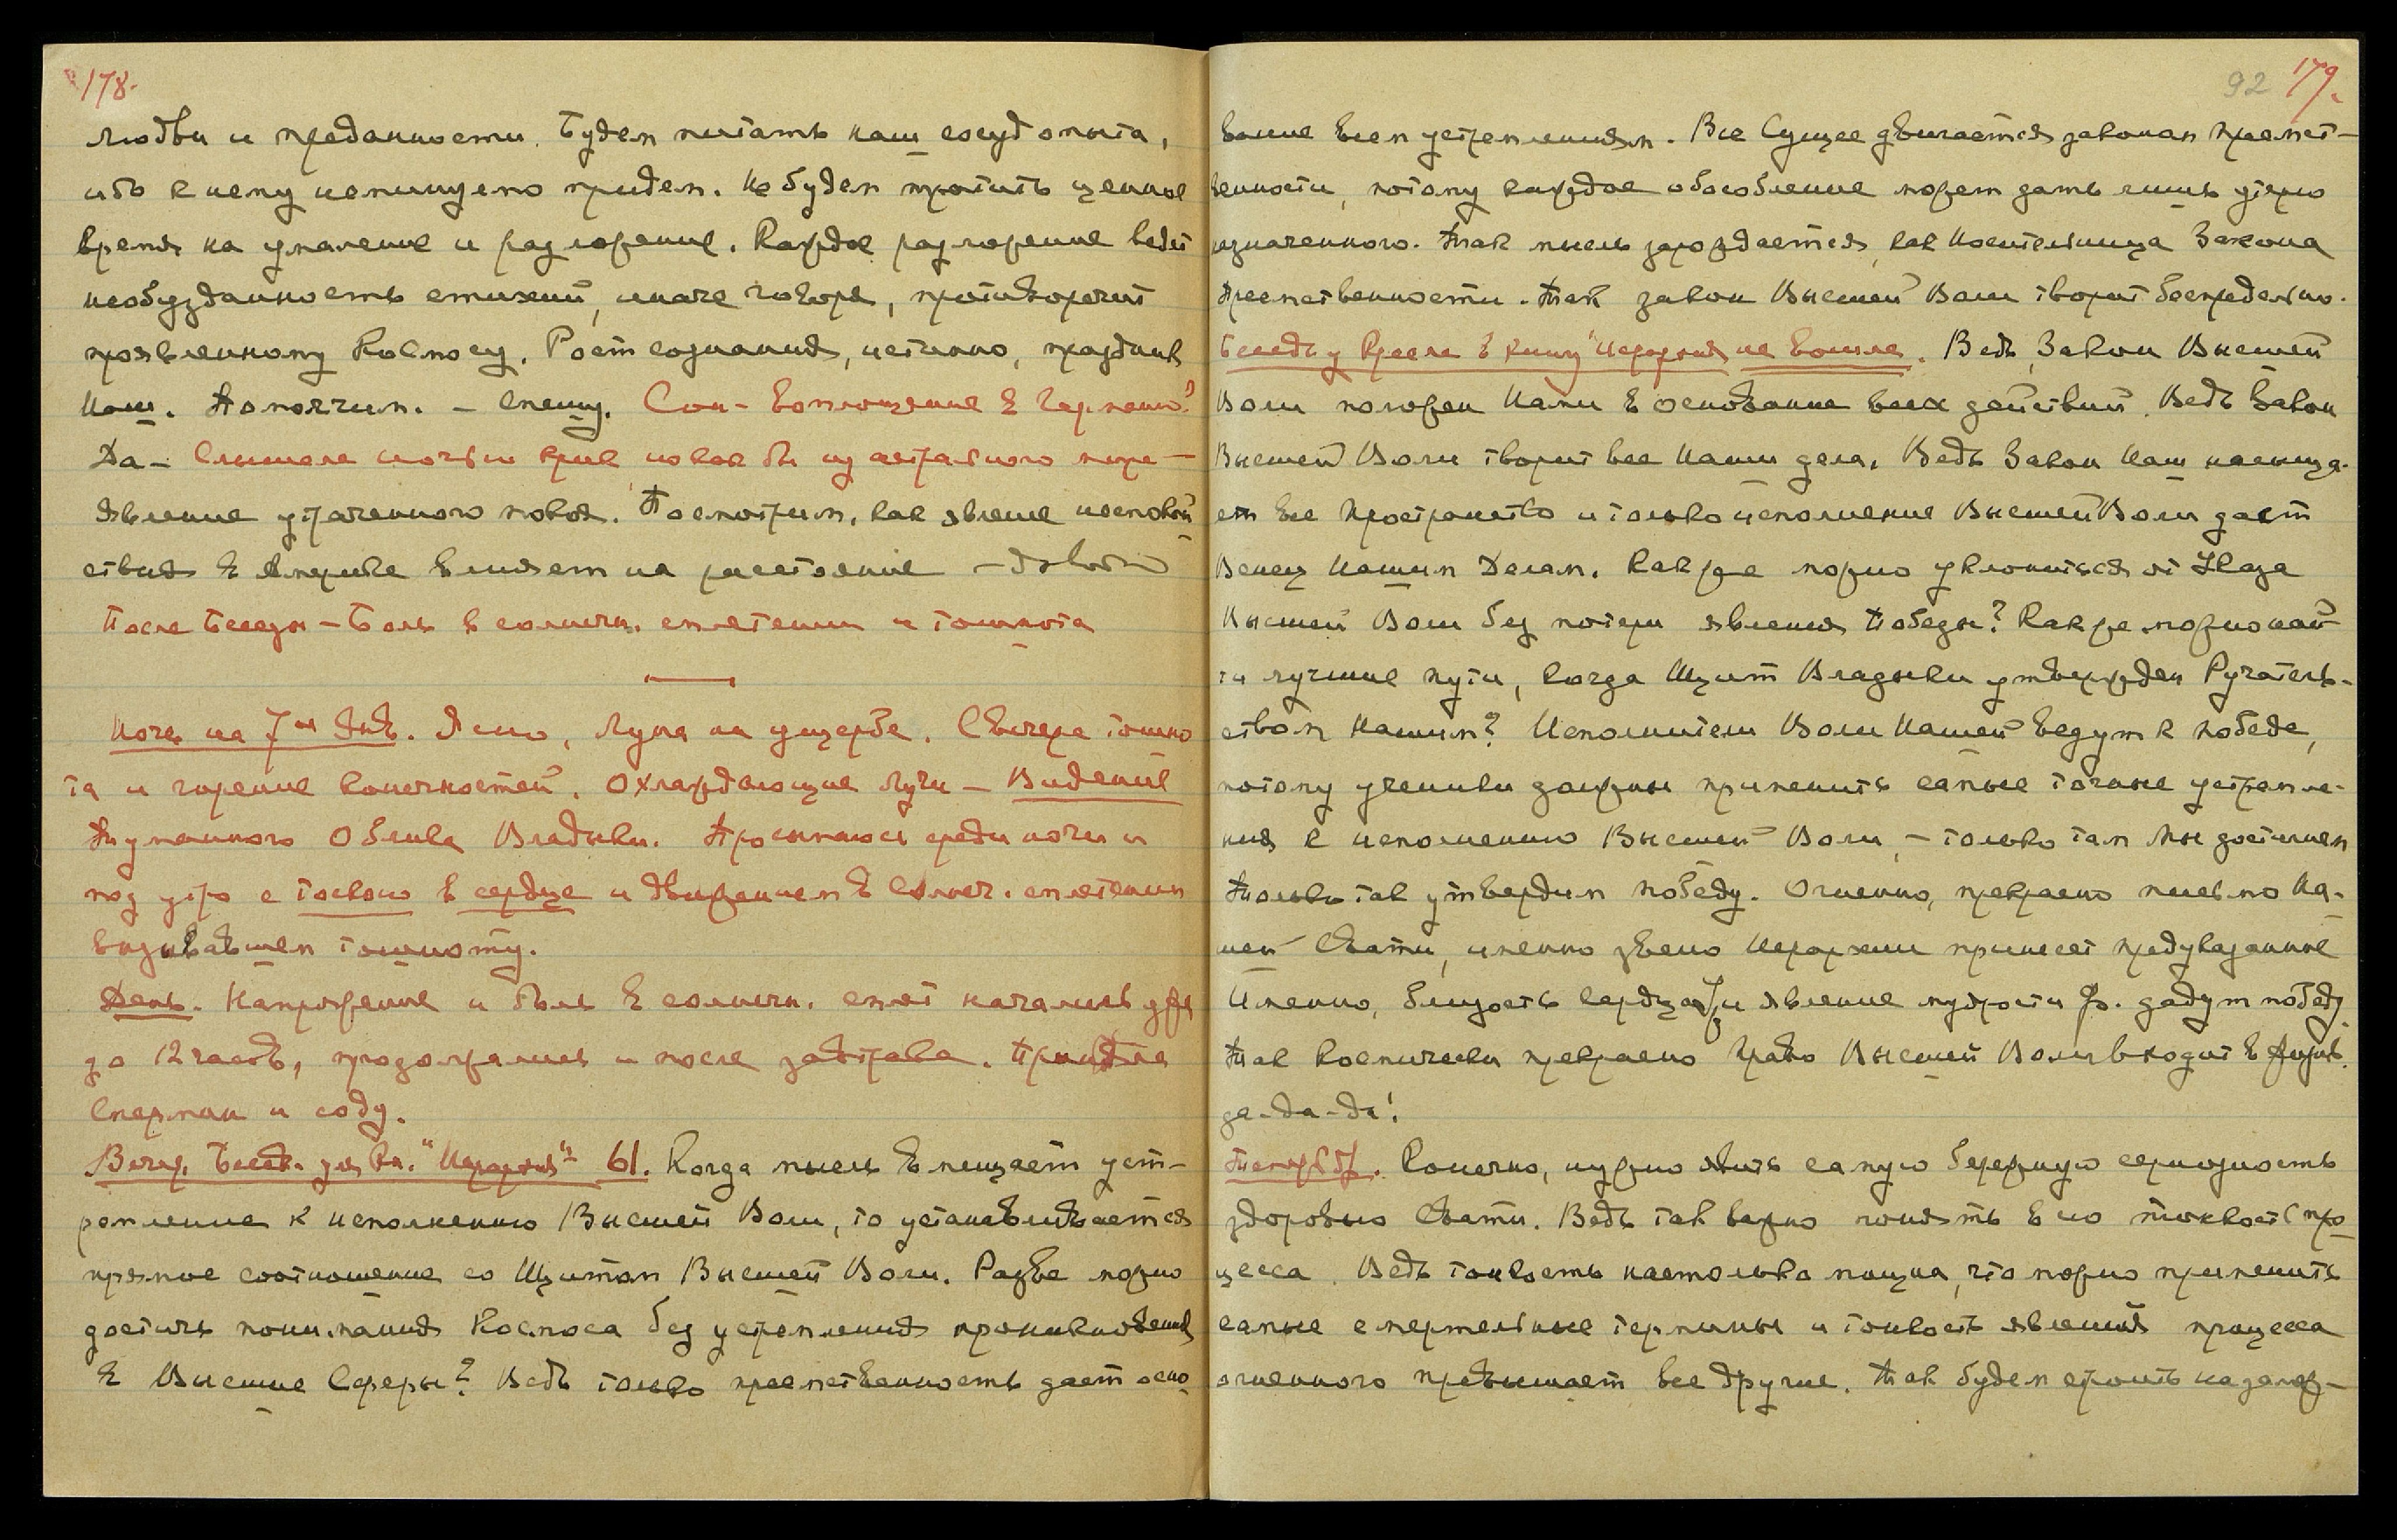 178.
любви и преданности. Будем питать наш сосуд опыта,
ибо к нему неминуемо придем. Не будем тратить ценное
время на умаление и разложение. Каждое разложение ведет
необузданность стихий, иначе говоря, противоречит
проявленному Космосу. Рост сознания, истинно, праздник
Наш. Помолчим. – Спешу. Сон – воплощение в Германию?
Да – Слышала ночью крик, но как бы из астрального мира –
явление утраченного покоя. Посмотрим, как явление неспокой
ствия в Америке влияет на расстояние – довольно
После Беседы – Боль в солнечн. сплетении и тошнота
Ночь на 7ое Янв. Ясно, Луна на ущербе. С вечера тошно
та и горение конечностей. Охлаждающие Лучи – Видение
Туманного Облика Владыки. Просыпаюсь среди ночи и
под утро с тоскою в сердце и движением в Солнеч. сплетении
вызывавшем тошноту.
День. Напряжение и боль в солнечн. сплет начались уже
до 12 часов, продолжались и после завтрака. Приняла
Спермин и соду.
Вечер. Бесед. для Кн. "Иерархия" 61. Когда мысль вмещает уст-
ремление к исполнению Высшей Воли, то устанавливается
прямое соотношение со Щитом Высшей Воли. Разве можно
достичь понимания Космоса без устремления проникновения
в Высшие Сферы? Ведь только преемственность дает осно
92 179.
вание всем устремлениям. Все Сущее движется законом преемст-
венности, потому каждое обособление может дать лишь утерю
означенного. Так мысль зарождается, как Носительница Закона
Преемственности. Так закон Высшей Воли творит беспредельно.
Беседы у Кресла в книгу "Иерархия" не вошла. Ведь, Закон Высшей
Воли положен Нами в основание всех действий. Ведь Закон
Высшей Воли творит все Наши дела. Ведь Закон Наш насыща-
ет все Пространство и только исполнение Высшей Воли дает
Венец Нашим Делам. Как же можно уклониться от Указа
Высшей Воли без потери явления Победы? Как же можно най
ти лучшие пути, когда Щит Владыки утвержден Ручатель-
ством Нашим? Исполнители Воли Нашей ведут к победе,
потому ученики должны применить самые точные устремле-
ния к исполнению Высшей Воли, – только там Мы достигаем
Только так утвердим победу. Огненно, прекрасно письмо На-
шей Свати, именно звено Иерархии принесет предуказанное
Именно, близость сердца и явление мудрости Ф. дадут победу
Так космически прекрасно Право Высшей Воли входит в жизнь.
да-да-да!
Конечно, нужно явить самую бережную серьезность
здоровью Свати. Ведь так верно понять всю тонкость про
цесса. Ведь тонкость настолько мощна, что можно применить
самые смертельные термины и тонкость явления процесса
огненного превышает все другие. Так будем строить на залож-